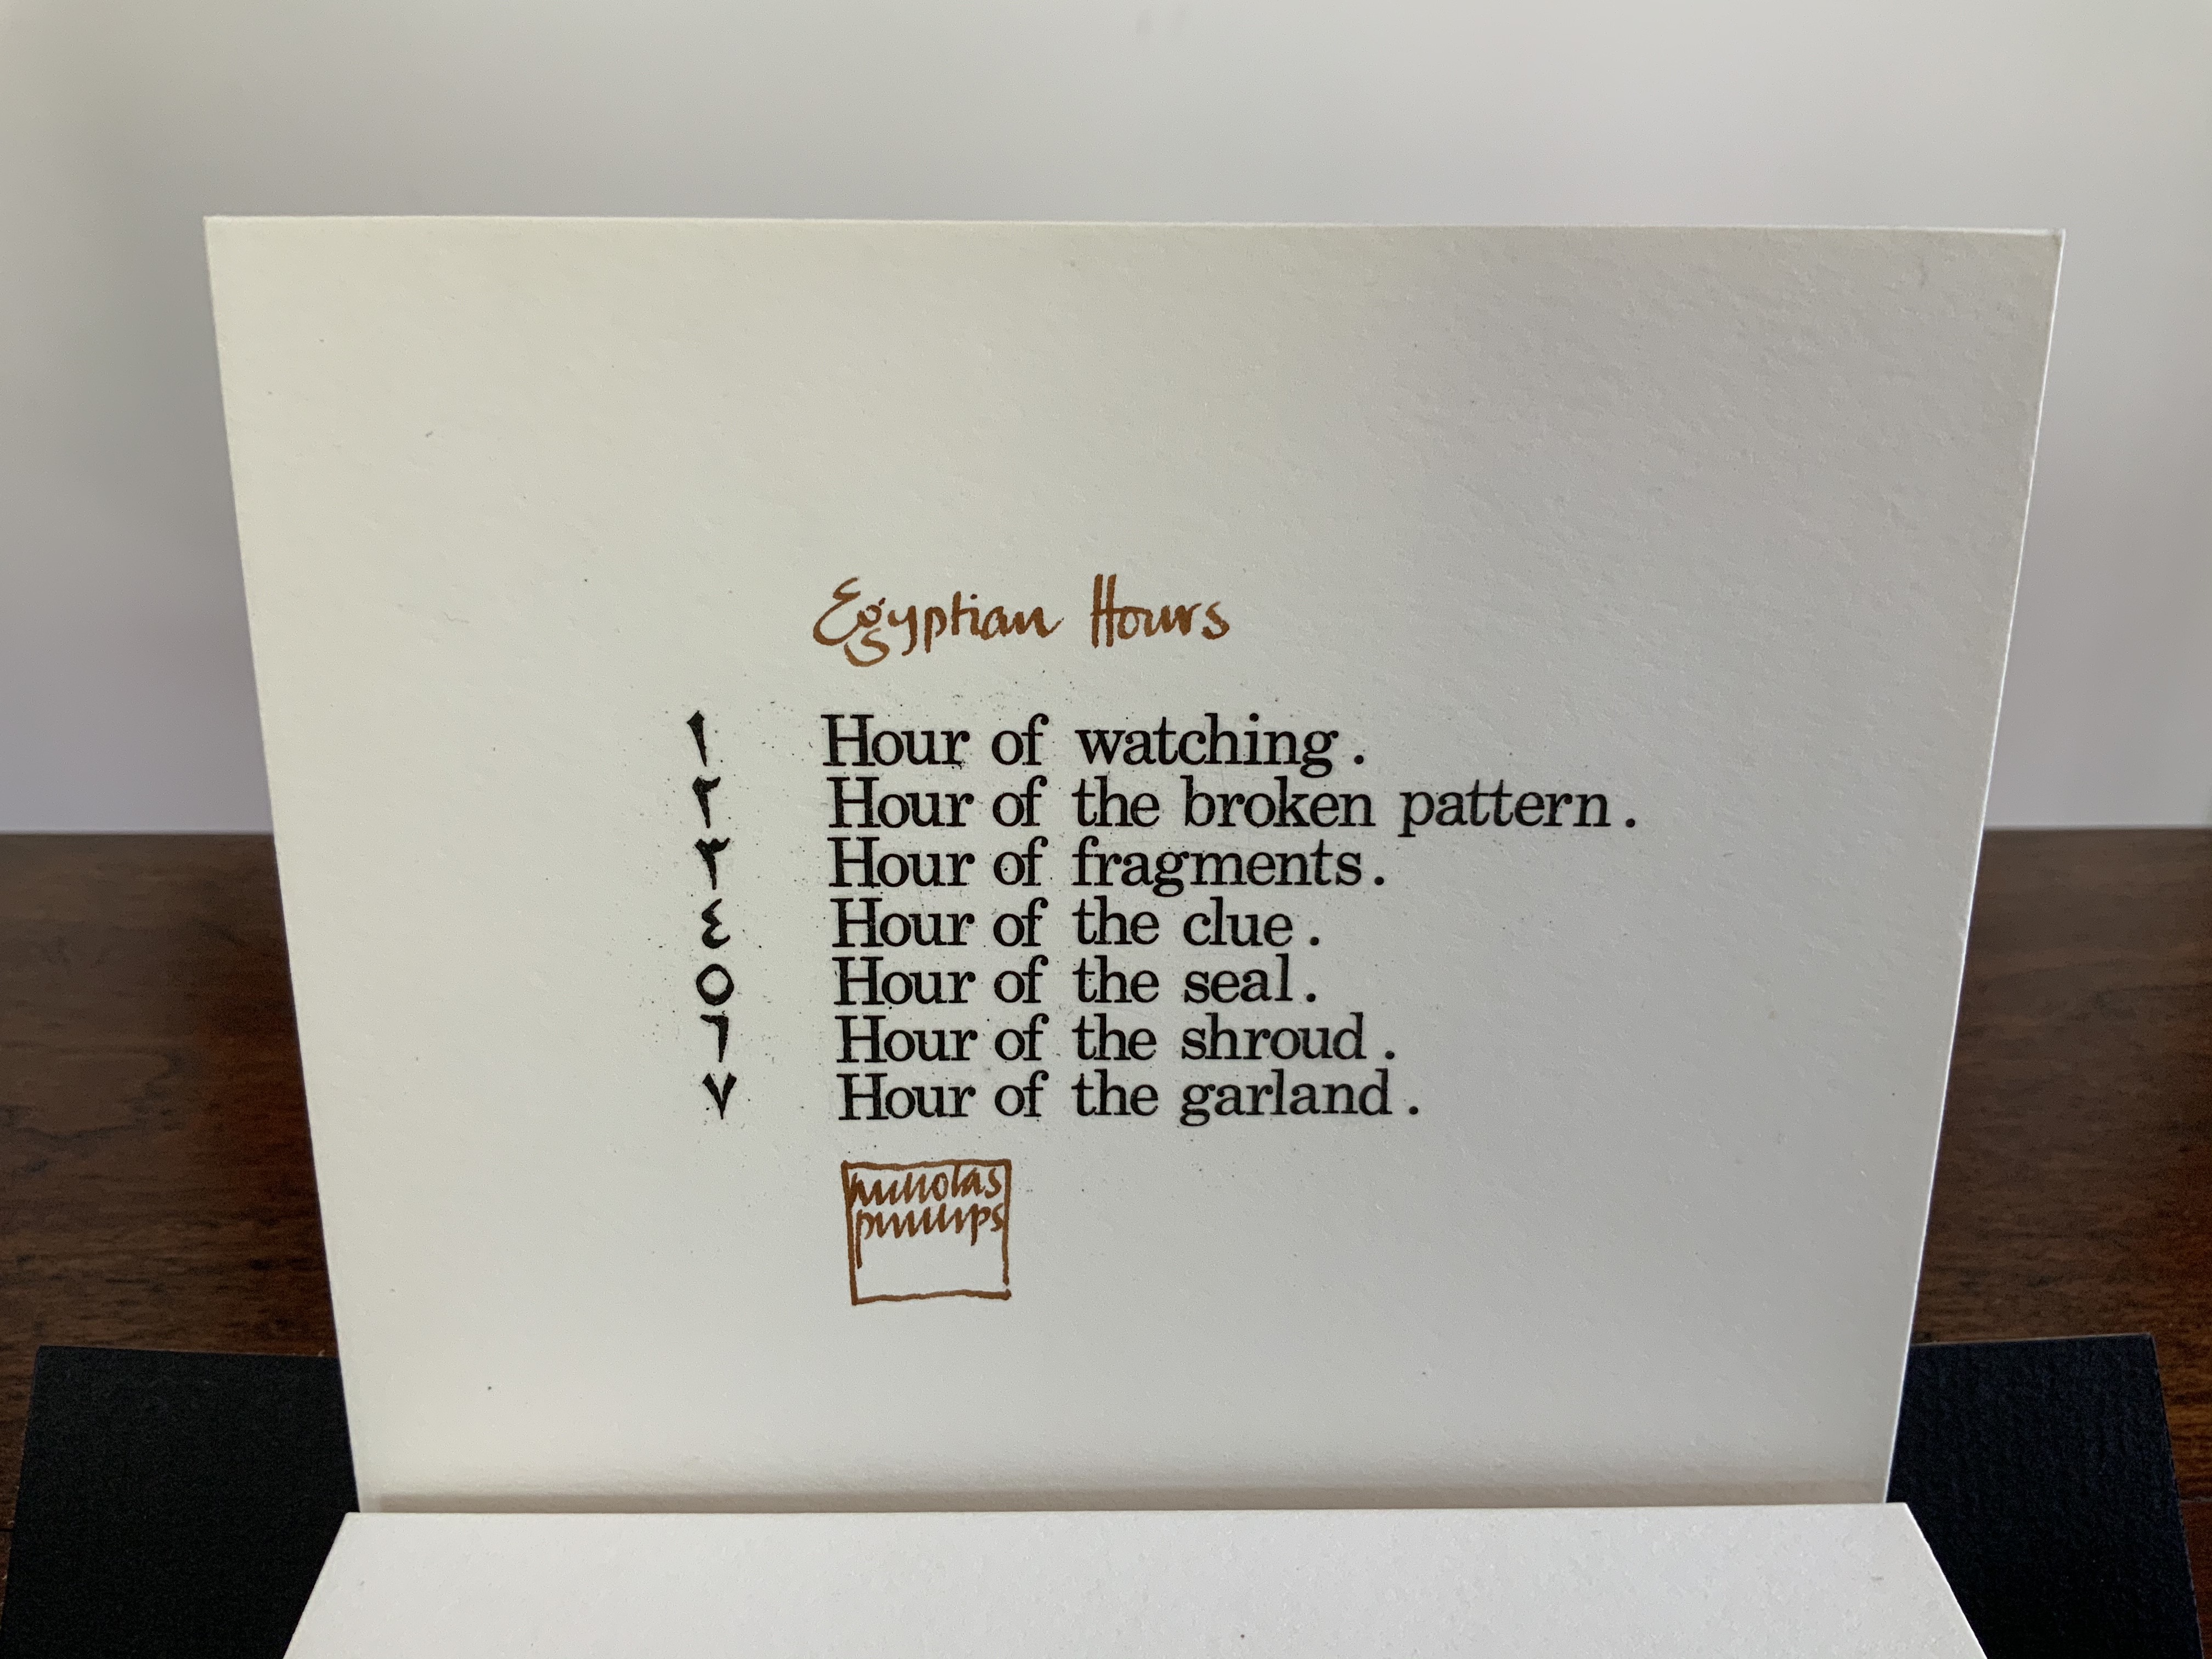 Egyptian Hours
١ Hour of watching.
٢ Hour of the broken pattern.
٣ Hour of fragments.
٤ Hour of the clue.
٥ Hour of the seal.
٦ Hour of the shroud.
٧ Hour of the garland.
nicholas
phillips